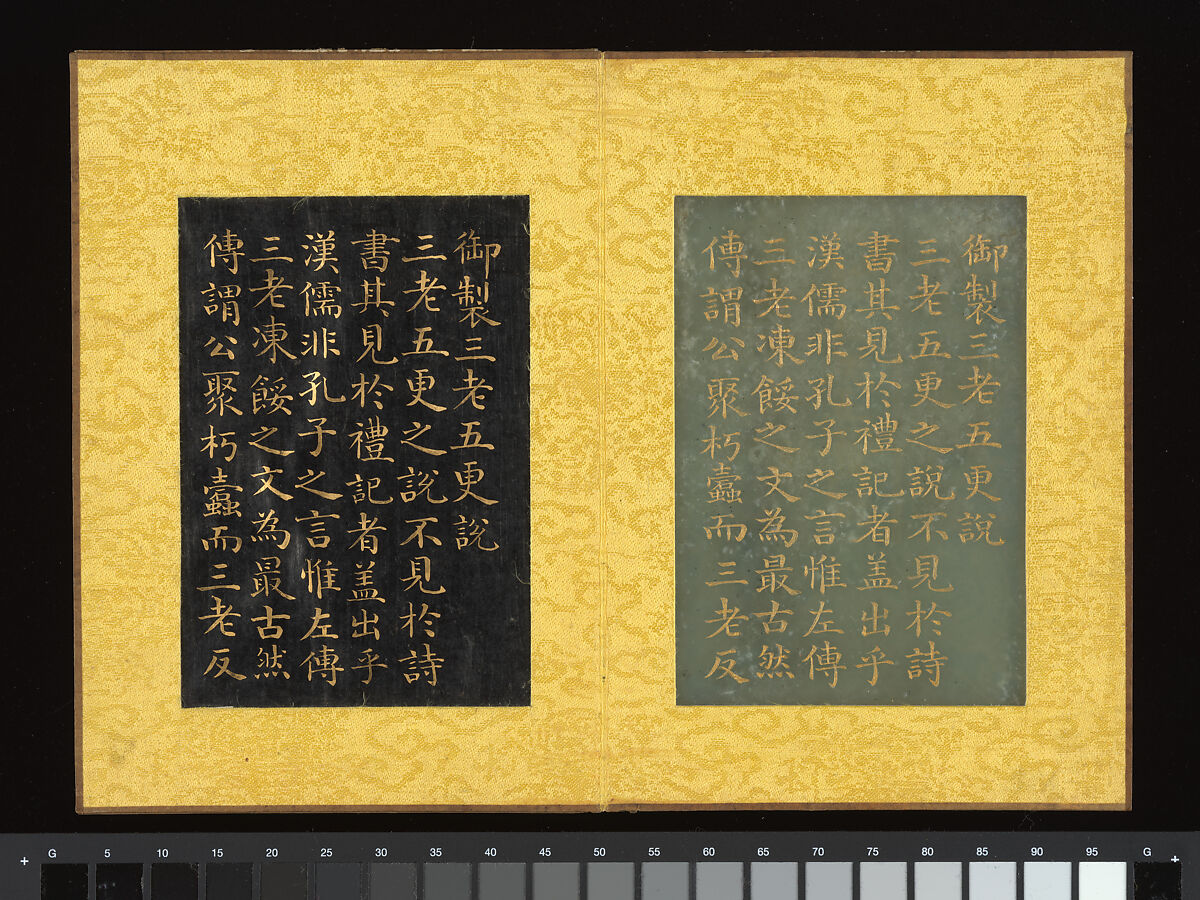 御製三老五更說
三老五更之說不見於詩
書其見於禮記者盖出乎
漢儒非孔子之言惟左傳
三老凍餒之文為最古然
傳謂公聚朽蠹而三老反
御製三老五更說
三老五更之說不見於詩
書其見於禮記者盖出乎
漢儒非孔子之言惟左傳
三老凍餒之文為最古然
傳謂公聚朽蠹而三老反
G 5 10 15 20 25 30 35 40 45 50 55 60 65 70 75 80 85 90 95 G